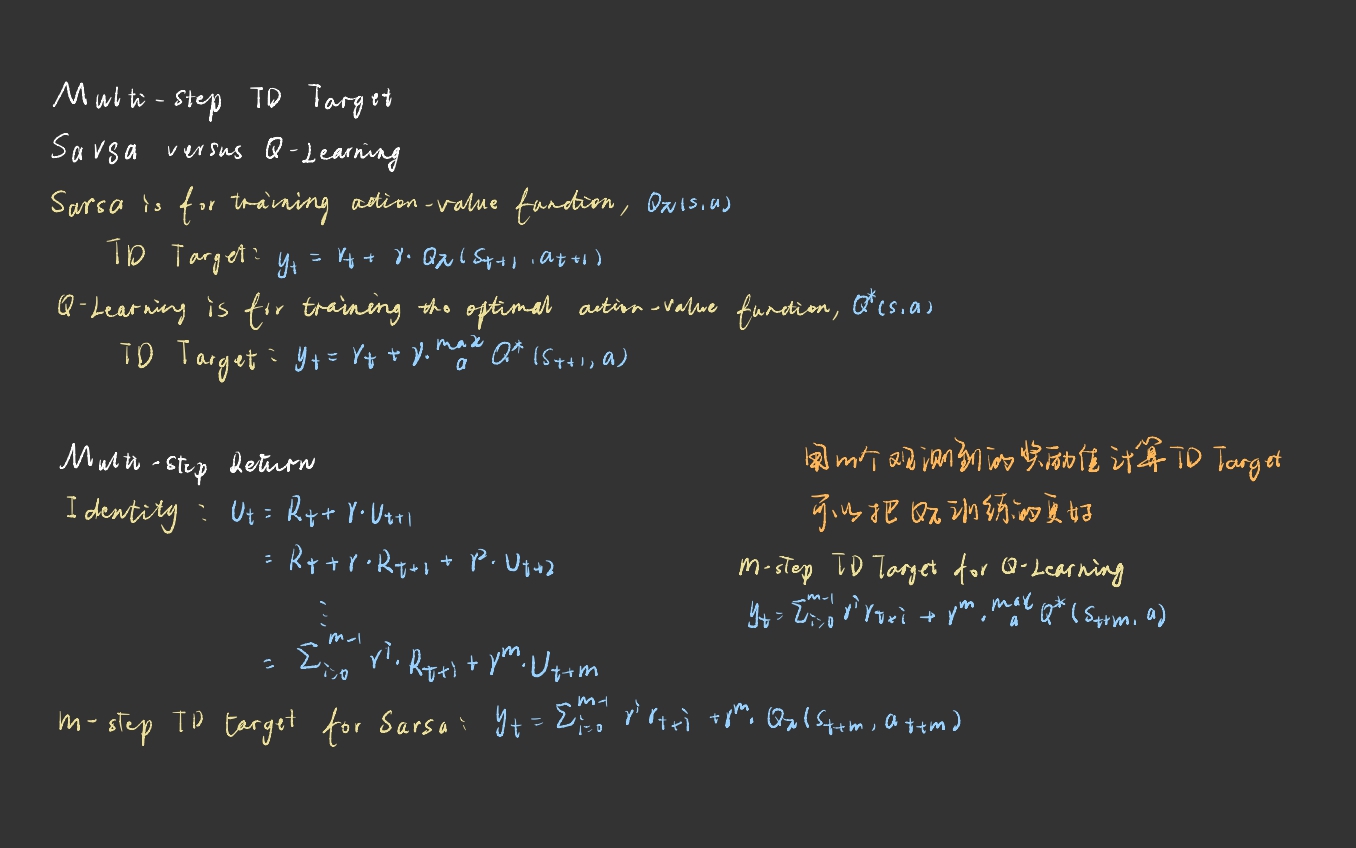 Multi-step TD Target
Sarsa versus Q-Learning
Sarsa is for training action-value function, Qπ(s,a)
TD Target: yₜ = rₜ + γ·Qπ(sₜ₊₁, aₜ₊₁)
Q-Learning is for training the optimal action-value function, Q*(s,a)
TD Target: yₜ = rₜ + γ·max_a Q*(sₜ₊₁, a)
Multi-step Return
Identity: Uₜ = Rₜ + γ·Uₜ₊₁
= Rₜ + γ·Rₜ₊₁ + γ²·Uₜ₊₂
⋮
= Σ_{i=0}^{m-1} γⁱ·Rₜ₊ᵢ + γᵐ·Uₜ₊ₘ
m-step TD target for Sarsa: yₜ = Σ_{i=0}^{m-1} γⁱ rₜ₊ᵢ + γᵐ·Qπ(sₜ₊ₘ, aₜ₊ₘ)
用m个观测到的奖励值计算TD Target
可以把Qπ训练的更好
m-step TD Target for Q-Learning
yₜ = Σ_{i=0}^{m-1} γⁱ rₜ₊ᵢ + γᵐ·max_a Q*(sₜ₊ₘ, a)